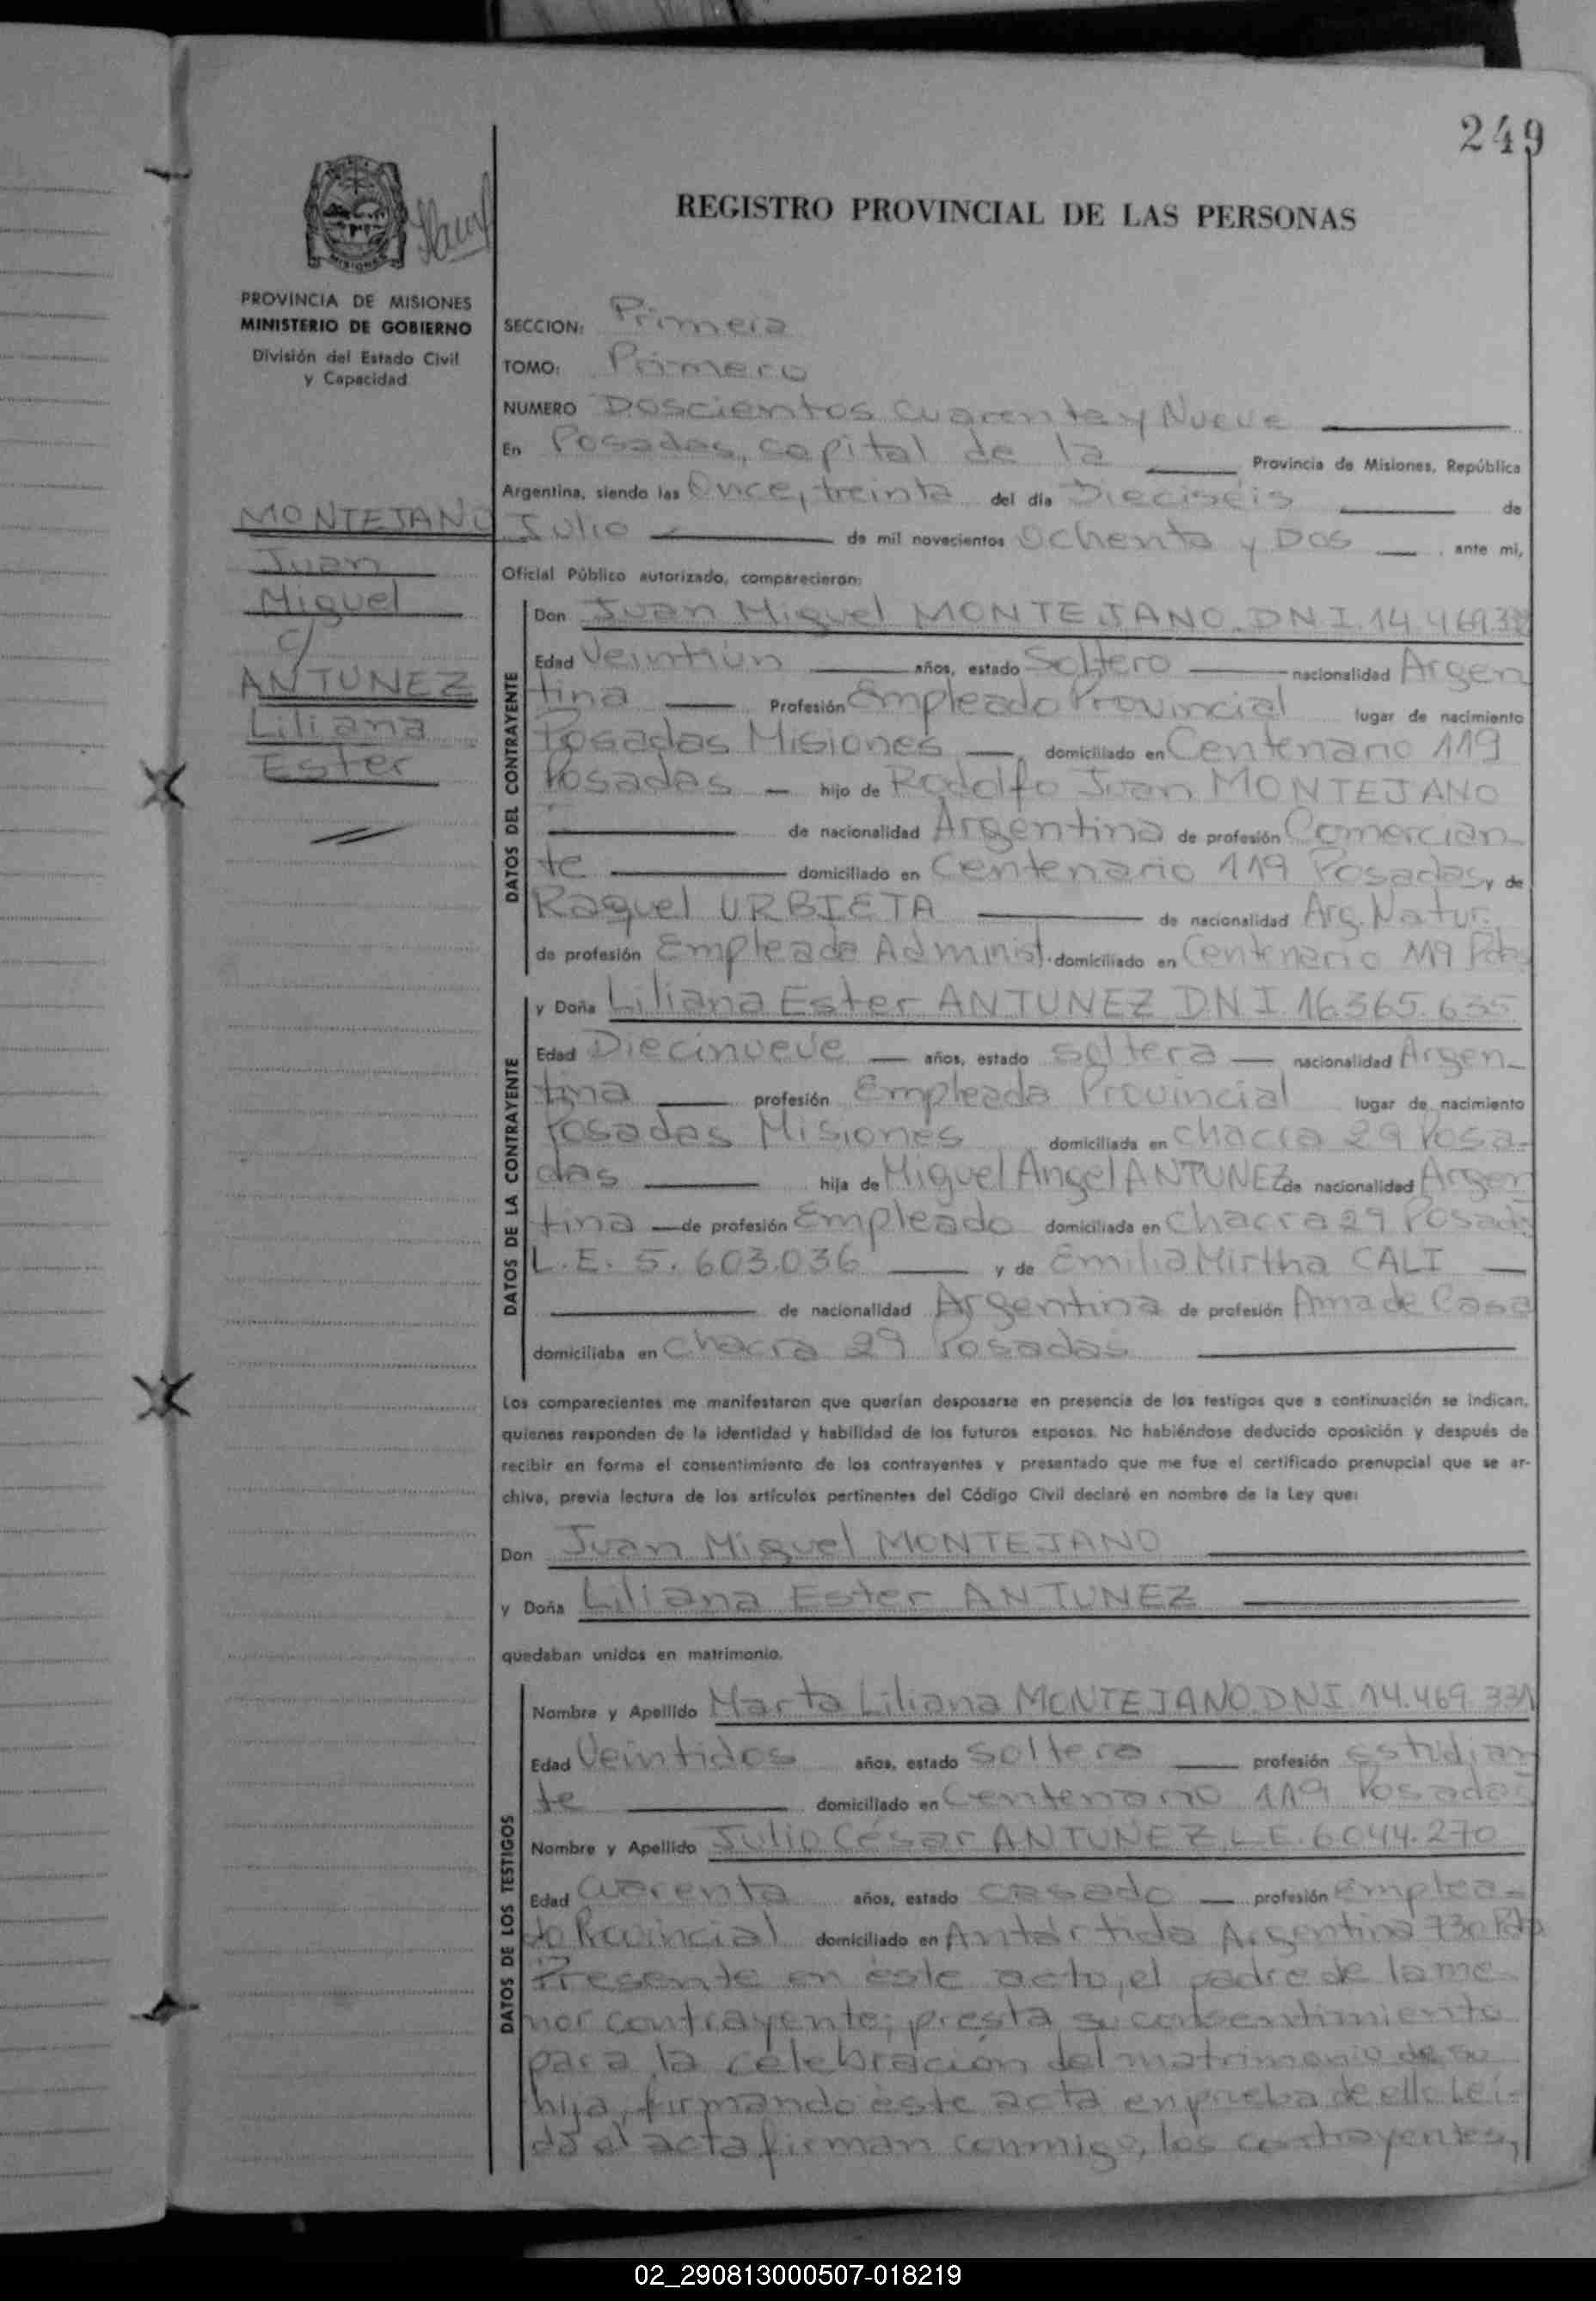 249
REGISTRO PROVINCIAL DE LAS PERSONAS
MISIONES
PROVINCIA DE MISIONES
MINISTERIO DE GOBIERNO
División del Estado Civil
y Capacidad
MONTEJANO
Juan
Miguel
c/
ANTUNEZ
Liliana
Ester
SECCION: Primera
TOMO: Primero
NUMERO Doscientos cuarenta y Nueve
En Posadas, capital de la Provincia de Misiones, República
Argentina, siendo las Once, treinta del día Dieciséis de
Julio de mil novecientos Ochenta y Dos, ante mi,
Oficial Público autorizado, comparecieron:
DATOS DEL CONTRAYENTE
Don Juan Miguel MONTEJANO. DNI.
Edad Veintiún años, estado Soltero nacionalidad Argen
tina Profesión Empleado Provincial lugar de nacimiento
Posadas Misiones, domiciliado en Centenario 119
Posadas hijo de Rodolfo Juan MONTEJANO
de nacionalidad Argentina de profesión Comercian
te domiciliado en Centenario 119 Posadas, y de
Raquel URBIETA de nacionalidad Arg. Natur.
de profesión Empleada Administ. domiciliado en Centenario 119 Pdas
DATOS DE LA CONTRAYENTE
y Doña Liliana Ester ANTUNEZ DNI 16.365.635
Edad Diecinueve años, estado soltera nacionalidad Argen-
tina profesión Empleada Provincial lugar de nacimiento
Posadas Misiones domiciliada en chacra 29 Posa-
das hija de Miguel Angel ANTUNEZ de nacionalidad Argen
tina de profesión Empleado domiciliada en chacra 29 Posadas
L.E. 5.603.036 y de Emilia Mirtha CALI
de nacionalidad Argentina de profesión Ama de Casa
domiciliaba en chacra 29 Posadas
Los comparecientes me manifestaron que querían desposarse en presencia de los testigos que a continuación se indican,
quienes responden de la identidad y habilidad de los futuros esposos. No habiéndose deducido oposición y después de
recibir en forma el consentimiento de los contrayentes y presentado que me fue el certificado prenupcial que se ar-
chiva, previa lectura de los artículos pertinentes del Código Civil declaré en nombre de la Ley que:
Don Juan Miguel MONTEJANO
y Doña Liliana Ester ANTUNEZ
quedaban unidos en matrimonio.
DATOS DE LOS TESTIGOS
Nombre y Apellido Marta Liliana MONTEJANO. DNI. 14.469.331
Edad Veintidos años, estado soltera profesión estudian
te domiciliado en Centenario 119 Posadas
Nombre y Apellido Julio César ANTUNEZ, L.E. 6.044.270
Edad cuarenta años, estado casado profesión emplea-
do Provincial domiciliado en Antártida Argentina 730 Pdas
Presente en éste acto, el padre de la me
nor contrayente; presta su consentimiento
para la celebración del matrimonio de su
hija, firmando éste acta en prueba de ello. Leí-
da el acta firman conmigo, los contrayentes,
02_290813000507-018219